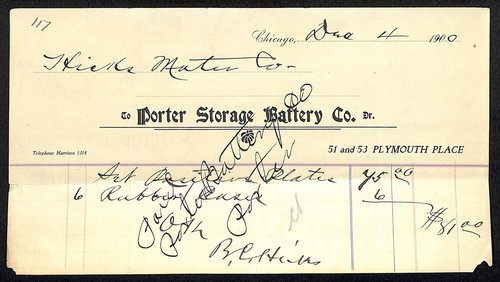 117
Chicago, Dec 4 1900
Hicks Motor Co-
To Porter Storage Battery Co. Dr.
Telephone Harrison 1314
51 and 53 PLYMOUTH PLACE
Set Positive Plates 75 00
6 Rubber Cases 6
$81 00
Paid
Porter Battery Co
Porter
B.C. Hicks